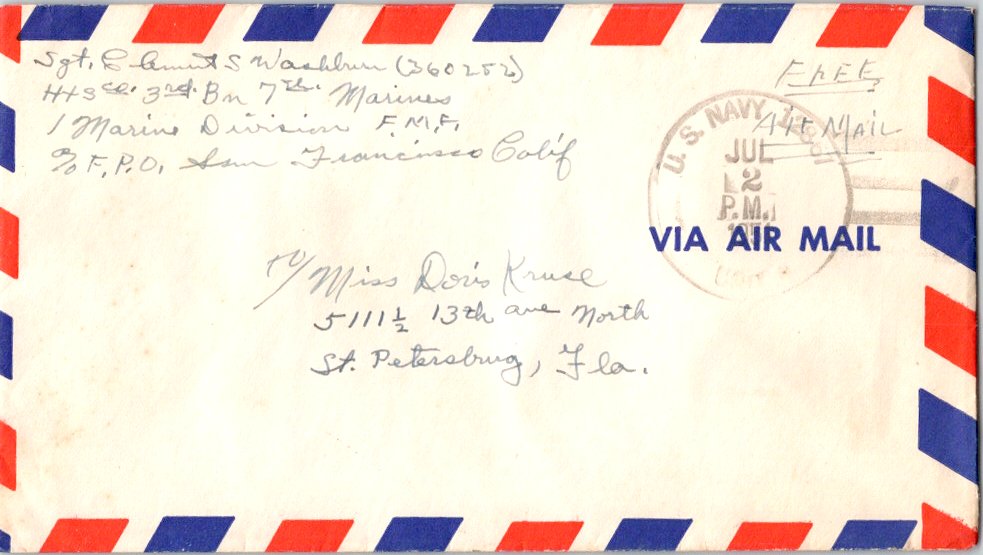 Sgt. Clement S Washburn (360252)
H+S co. 3rd. Bn 7th. Marines
1 Marine Division F.M.F.
c/o F.P.O. San Francisco Calif
FREE
Air Mail
U.S. NAVY
JUL
2
P.M.
VIA AIR MAIL
To/ Miss Doris Kruse
5111 1/2 13th ave North
St. Petersbrug, Fla.